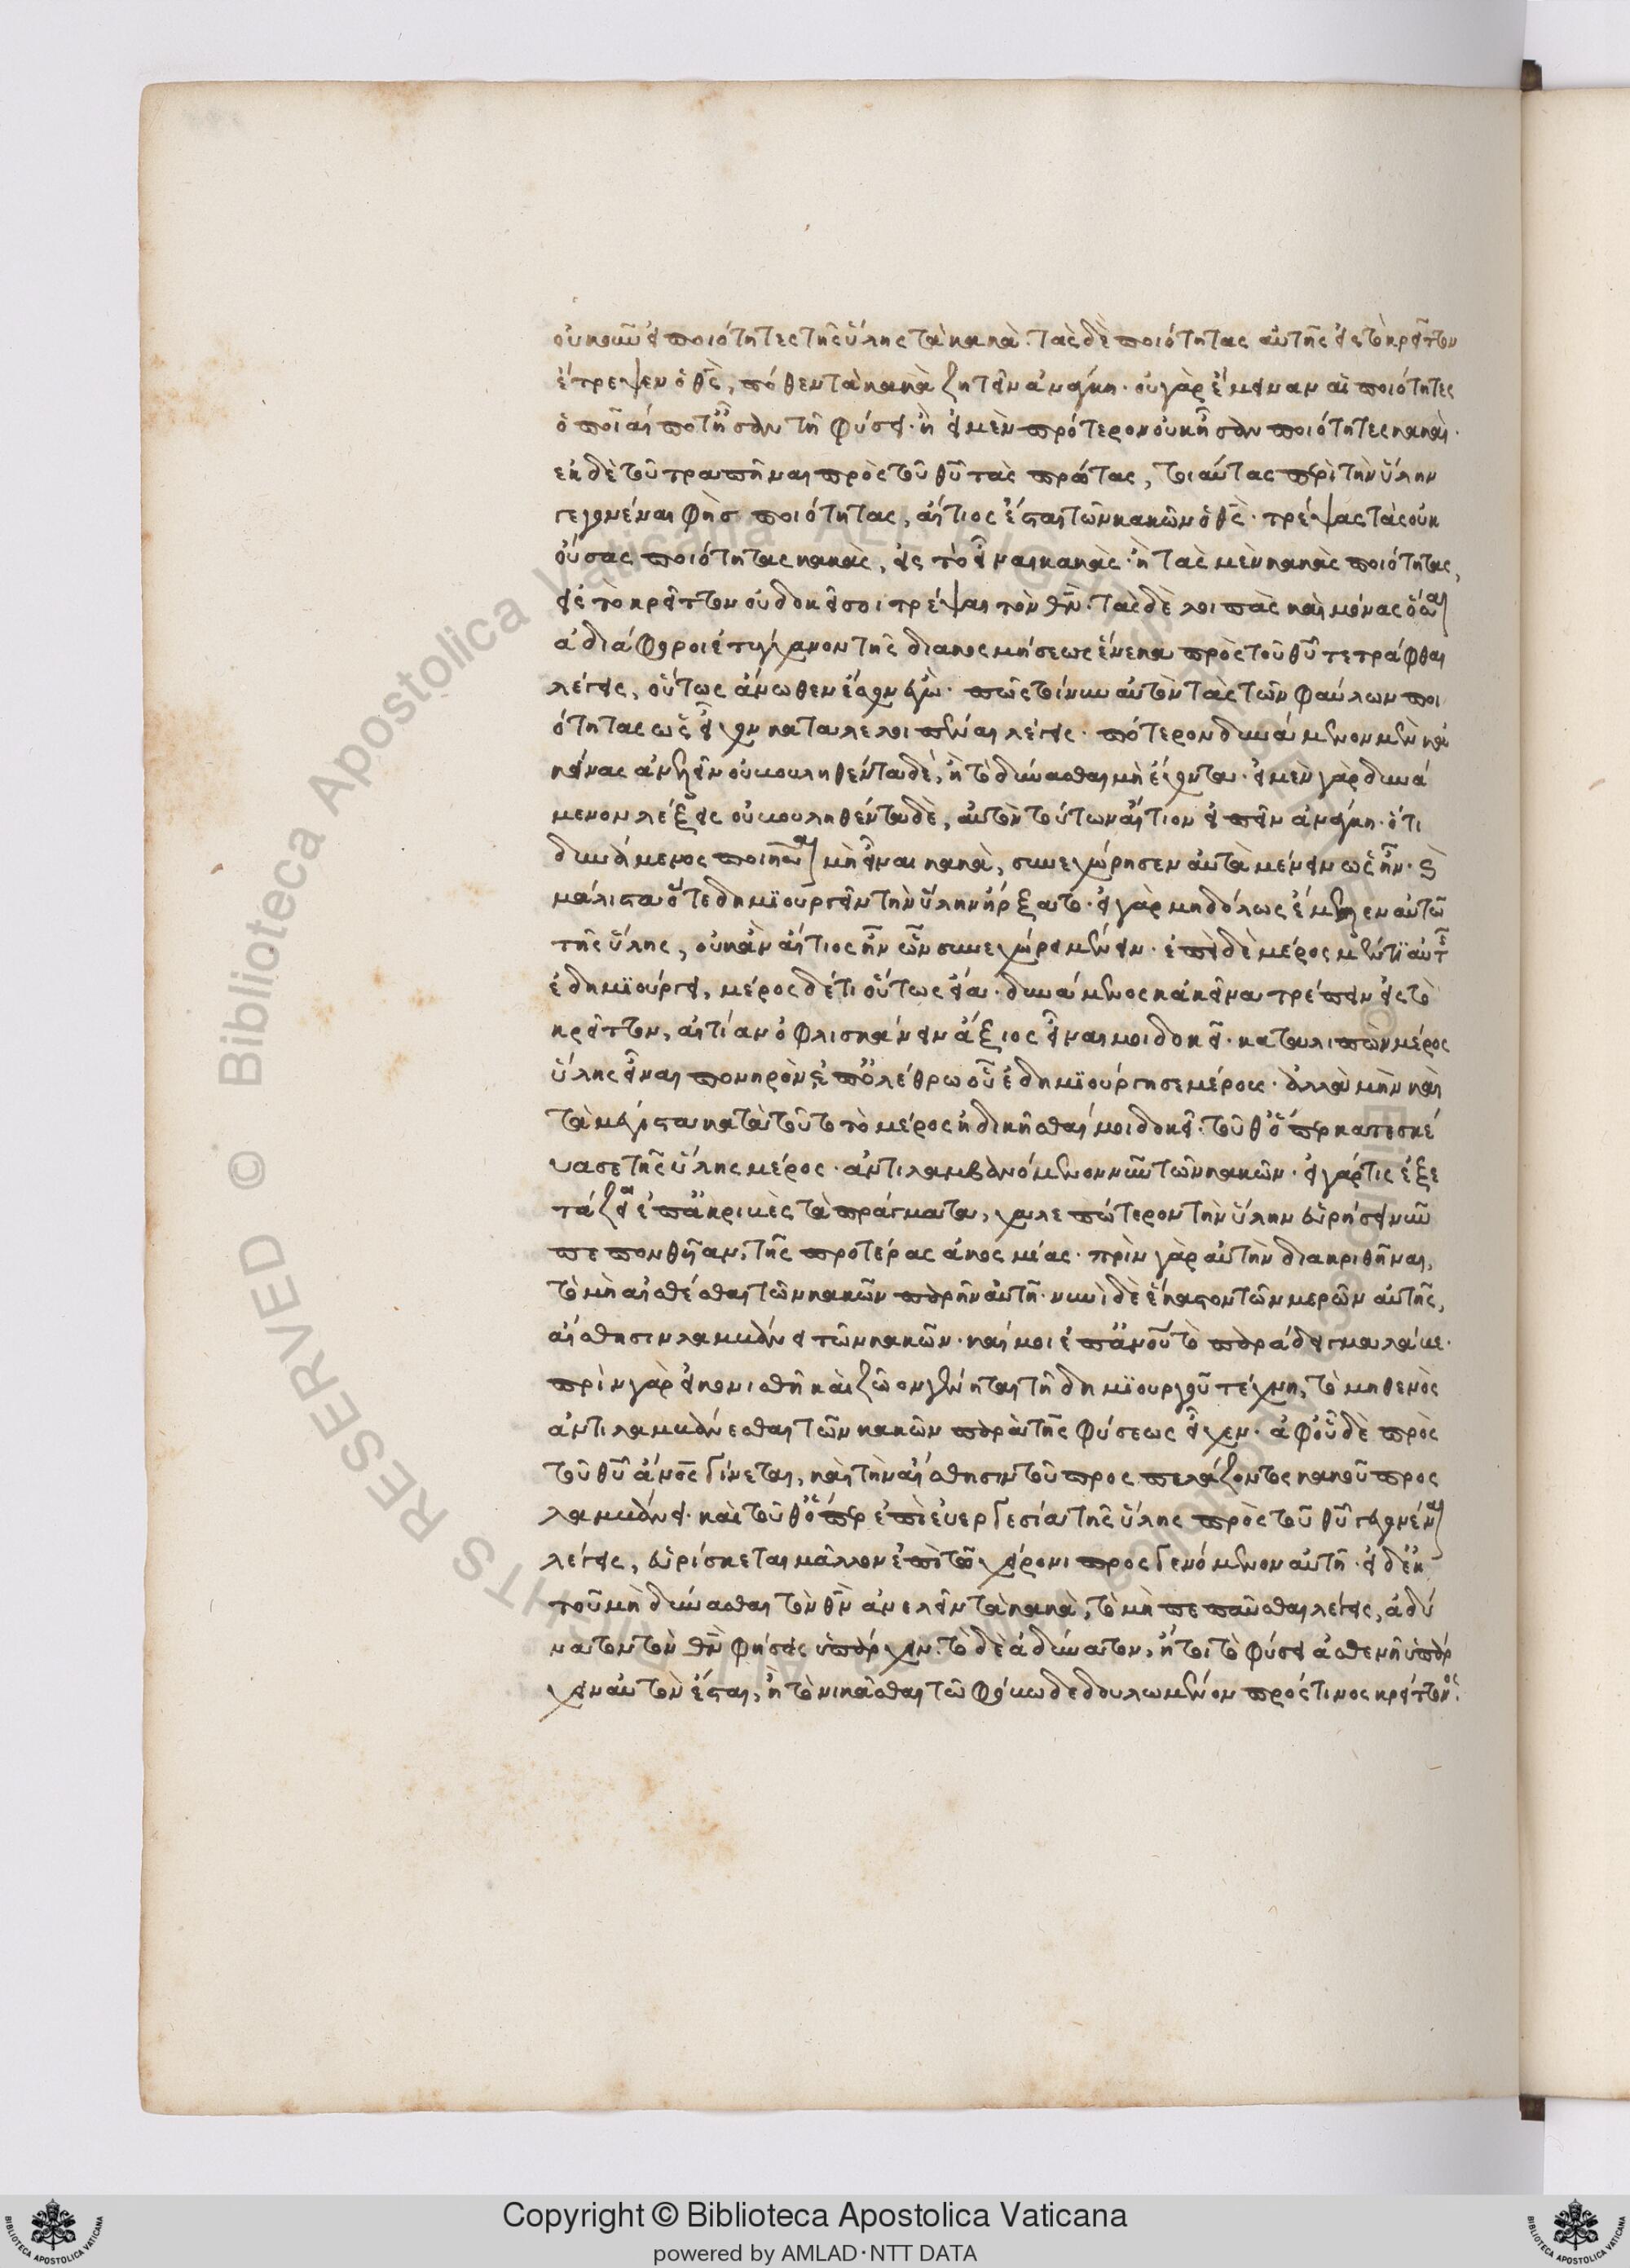 οὐκοῦν εἰ ποιότητες τῆς ὕλης τὰ κακά. τὰς δὲ ποιότητας αὐτῆς εἰς τὸ κρεῖττον
ἔτρεψεν ὁ θς, πόθεν τὰ κακὰ ζητεῖν ἀνάγκη. οὐ γὰρ ἔμειναν αἱ ποιότητες
ὁποῖαί ποτ' ἦσαν τῇ φύσει. ἢ εἰ μὲν πρότερον οὐκ ἦσαν ποιότητες κακαί.
ἐκ δὲ τοῦ τραπῆναι πρὸς τοῦ θυ τὰς πρώτας, τοιαύτας περὶ τὴν ὕλην
γεγονέναι φὴς ποιότητας, αἴτιος ἔσται τῶν κακῶν ὁ θς. τρέψας τὰς οὐκ
οὔσας ποιότητας κακὰς, εἰς τὸ εἶναι κακάς. ἢ τὰς μὲν κακὰς ποιότητας,
εἰς τὸ κρεῖττον οὐ δοκεῖ σοι τρέψαι τὸν θν. τὰς δὲ λοιπὰς καὶ μόνας ὅσαι
ἀδιάφοροι ἐτύγχανον τῆς διακοσμήσεως ἕνεκα πρὸς τοῦ θυ τετράφθαι
λέγεις, οὕτως ἄνωθεν ἔσχον ἐγώ. πῶς τοίνυν αὐτὸν τὰς τῶν φαύλων ποι
ότητας ὡς εἶχον καταλελοιπέναι λέγεις. πότερον δυνάμενον μὲν κἀ
κείνας ἀνελεῖν οὐ βουληθέντα δέ, ἢ τὸ δύνασθαι μὴ ἔχοντα. εἰ μὲν γὰρ δυνά
μενον λέξεις οὐ βουληθέντα δὲ, αὐτὸν τούτων αἴτιον εἰπεῖν ἀνάγκη. ὅτι
δυνάμενος ποιῆσαι μὴ εἶναι κακὰ, συνεχώρησεν αὐτὰ μένειν ὡς ἦν. καὶ
μάλιστα ὅτε δημϊουργεῖν τὴν ὕλην ἤρξατο. εἰ γὰρ μηδ' ὅλως ἔμελεν αὐτῷ
τῆς ὕλης, οὐκ ἂν αἴτιος ἦν ὧν συνεχώρει μένειν. ἐπεὶ δὲ μέρος μέν τι αὐτῆς
ἐδημϊούργει, μέρος δέ τι οὕτως εἴα. δυνάμενος κἀκεῖνα τρέπειν εἰς τὸ
κρεῖττον, αἰτίαν ὀφλισκάνειν ἄξιος εἶναί μοι δοκεῖ. καταλιπὼν μέρος
ὕλης εἶναι πονηρὸν ἐπ' ὀλέθρῳ οὗ ἐδημϊούργησε μέρους. ἀλλὰ μὴν καὶ
τὰ μέγιστα κατὰ τοῦτο τὸ μέρος ἠδικῆσθαί μοι δοκεῖ. τοῦθ' ὅπερ κατεσκεύ
υασε τῆς ὕλης μέρος. ἀντιλαμβανόμενον νῦν τῶν κακῶν. εἰ γάρ τις ἐξε
τάζοι ἐπ' ἀκριβὲς τὰ πράγματα, χαλεπώτερον τὴν ὕλην εὑρήσει νῦν
πεπονθυῖαν, τῆς προτέρας ἀκοσμίας. πρὶν γὰρ αὐτὴν διακριθῆναι,
τὸ μὴ αἰσθέσθαι τῶν κακῶν παρῆν αὐτῇ. νυνὶ δὲ ἕκαστον τῶν μερῶν αὐτῆς,
αἴσθησιν λαμβάνει τῶν κακῶν. καί μοι ἐπ' ἀνου τὸ παράδειγμα λάβε.
πρὶν γὰρ εἰκονισθῇ καὶ ζῷον γένηται τῇ δημϊουργοῦ τέχνῃ, τὸ μηθενὸς
ἀντιλαμβάνεσθαι τῶν κακῶν παρὰ τῆς φύσεως εἶχεν. ἀφ' οὗ δὲ πρὸς
τοῦ θυ ἄνος γίνεται, καὶ τὴν αἴσθησιν τοῦ προσπελάζοντος κακοῦ προς
λαμβάνει. καὶ τοῦθ' ὅπερ ἐπὶ εὐεργεσίᾳ τῆς ὕλης πρὸς τοῦ θυ γεγονέναι
λέγεις, εὑρίσκεται μᾶλλον ἐπὶ τῷ χείρονι προσγενόμενον αὐτῇ. εἰ δὲ ἐκ
τοῦ μὴ δύνασθαι τὸν θν ἀνελεῖν τὰ κακὰ, τὸ μὴ πεπαῦσθαι λέγεις, ἀδύ
νατον τὸν θν φήσεις ὑπάρχειν. τὸ δὲ ἀδύνατον, ἤτοι τὸ φύσει ἀσθενῆ ὑπάρ
χειν αὐτὸν ἔσται, ἢ τὸ νικᾶσθαι τῷ φόβῳ δεδουλωμένον πρός τινος κρείττονος.